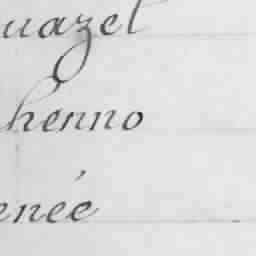 uazel
henno
enée